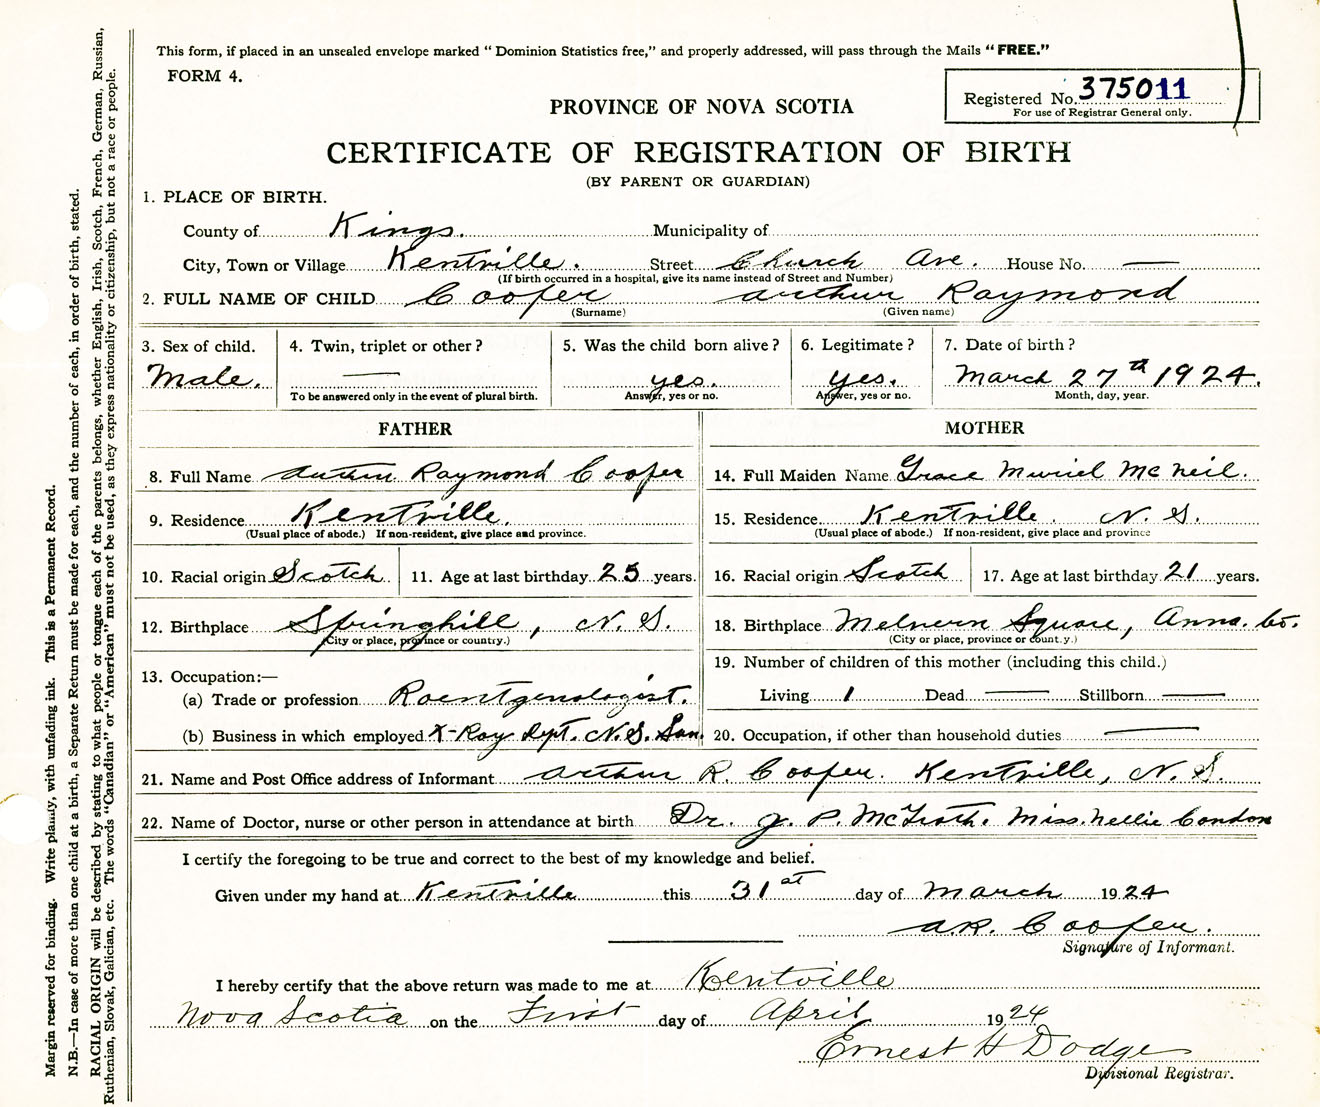 This form, if placed in an unsealed envelope marked " Dominion Statistics free," and properly addressed, will pass through the Mails " FREE."
FORM 4.
Registered No. 375011
For use of Registrar General only.
PROVINCE OF NOVA SCOTIA
CERTIFICATE OF REGISTRATION OF BIRTH
(BY PARENT OR GUARDIAN)
1. PLACE OF BIRTH.
County of Kings. Municipality of
City, Town or Village Kentville. Street Church Ave. House No. —
(If birth occurred in a hospital, give its name instead of Street and Number)
2. FULL NAME OF CHILD Cooper Arthur Raymond
(Surname) (Given name)
3. Sex of child. 4. Twin, triplet or other ? 5. Was the child born alive ? 6. Legitimate ? 7. Date of birth ?
Male. — yes. yes. March 27th 1924.
To be answered only in the event of plural birth. Answer, yes or no. Answer, yes or no. Month, day, year.
FATHER MOTHER
8. Full Name Arthur Raymond Cooper 14. Full Maiden Name Grace Muriel McNeil.
9. Residence Kentville. 15. Residence Kentville. N. S.
(Usual place of abode.) If non-resident, give place and province. (Usual place of abode.) If non-resident, give place and province
10. Racial origin Scotch 11. Age at last birthday 25 years. 16. Racial origin Scotch 17. Age at last birthday 21 years.
12. Birthplace Springhill, N. S. 18. Birthplace Melvern Square, Anna. Co.
(City or place, province or country.) (City or place, province or country.)
19. Number of children of this mother (including this child.)
13. Occupation:—
(a) Trade or profession Roentgenologist. Living 1 Dead — Stillborn —
(b) Business in which employed X-Ray Dept. N.S. San. 20. Occupation, if other than household duties —
21. Name and Post Office address of Informant Arthur R Cooper. Kentville, N. S.
22. Name of Doctor, nurse or other person in attendance at birth Dr. J. P. Miss. Nellie Condon
I certify the foregoing to be true and correct to the best of my knowledge and belief.
Given under my hand at Kentville this 31st day of March 1924
A.R. Cooper.
Signature of Informant.
I hereby certify that the above return was made to me at Kentville
Nova Scotia on the First day of April 1924
Ernest H Dodge
Divisional Registrar.
Margin reserved for binding. Write plainly, with unfading ink. This is a Permanent Record.
N.B.—In case of more than one child at a birth, a Separate Return must be made for each, and the number of each, in order of birth, stated.
RACIAL ORIGIN will be described by stating to what people or tongue each of the parents belongs, whether English, Irish, Scotch, French, German, Russian,
Ruthenian, Slovak, Galician, etc. The words "Canadian" or "American" must not be used, as they express nationality or citizenship, but not a race or people.